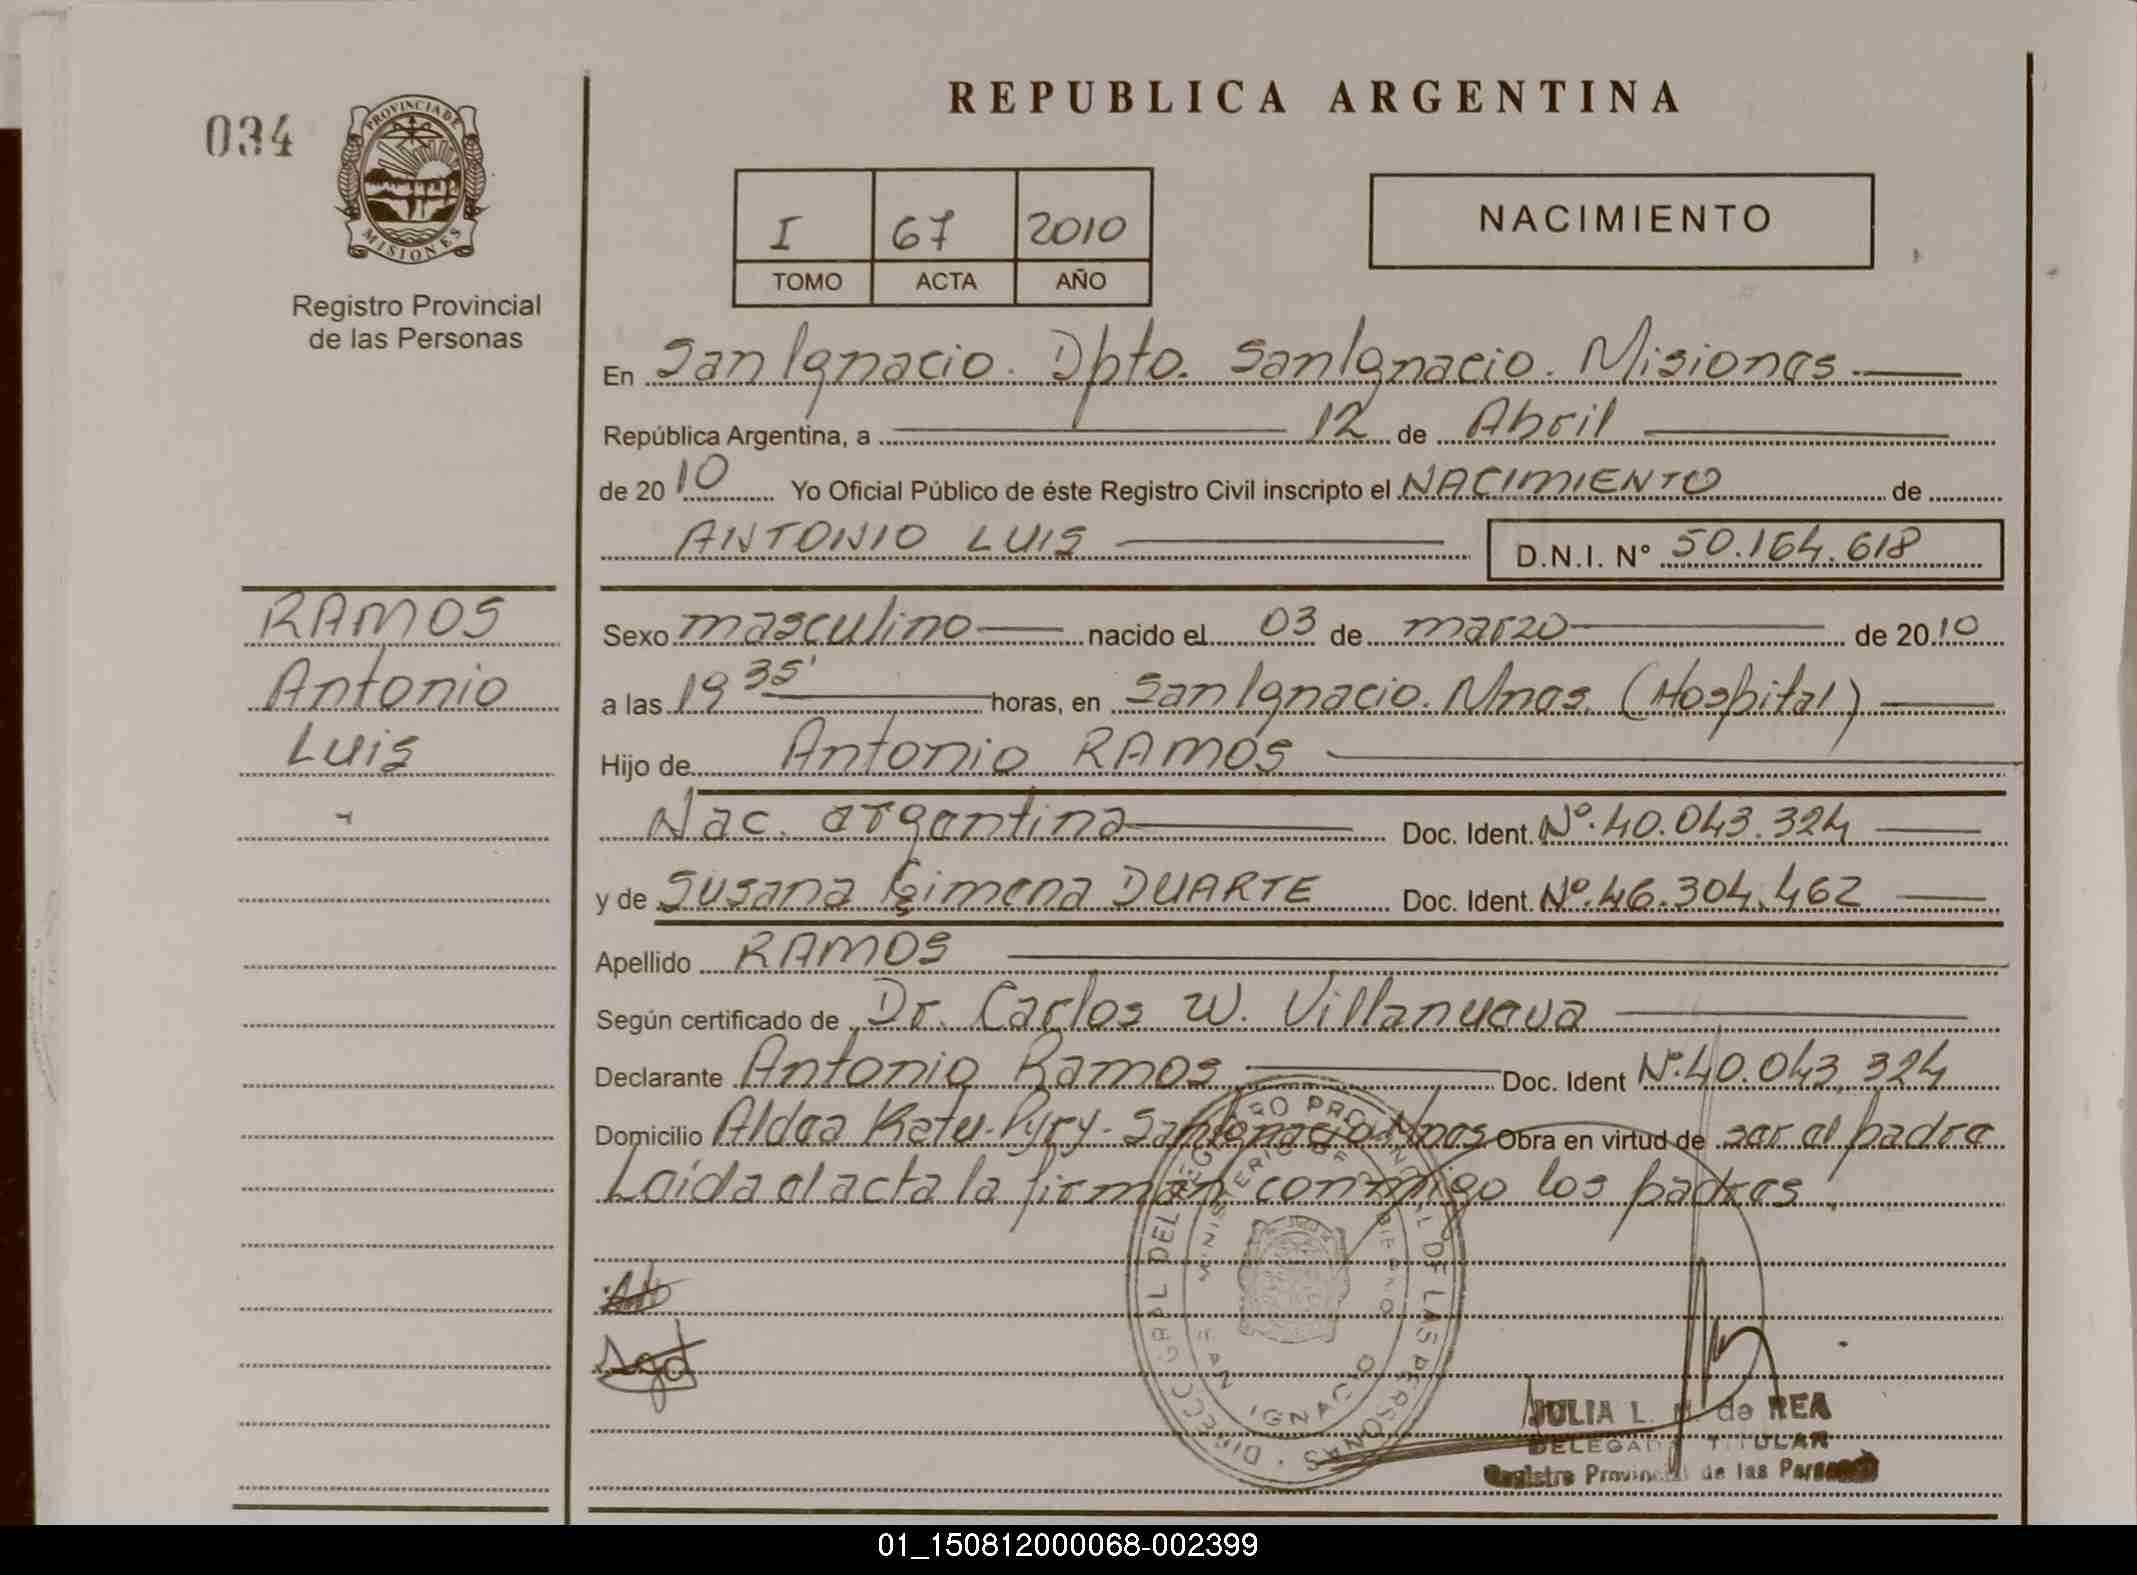 034
PROVINCIA DE
MISIONES
Registro Provincial
de las Personas
REPUBLICA ARGENTINA
I 67 2010
TOMO ACTA AÑO
NACIMIENTO
En San Ignacio. Dpto. San Ignacio. Misiones.
República Argentina, a 12 de Abril
de 2010 Yo Oficial Público de éste Registro Civil inscripto el NACIMIENTO de
ANTONIO LUIS D.N.I. N° 50.164.618
RAMOS
Antonio
Luis
Sexo masculino nacido el 03 de marzo de 2010
a las 19 35' horas, en San Ignacio. Mnes. (Hospital)
Hijo de Antonio RAMOS
Nac. argentina Doc. Ident. Nº. 40.043.324
y de Susana Gimena DUARTE Doc. Ident. Nº. 46.304.462
Apellido RAMOS
Según certificado de Dr. Carlos W. Villanueva
Declarante Antonio Ramos Doc. Ident Nº. 40.043.324
Domicilio Aldea Katu-Pyry- San Ignacio Mnes Obra en virtud de ser el padre
Leída el acta la firman conmigo los padres.
DIRECC GRAL DEL REGISTRO PROVINCIAL DE LAS PERSONAS
MINISTERIO DE GOBIERNO
SAN IGNACIO
JULIA L. de REA
DELEGADA TITULAR
Registro Provincial de las Personas
01_150812000068-002399